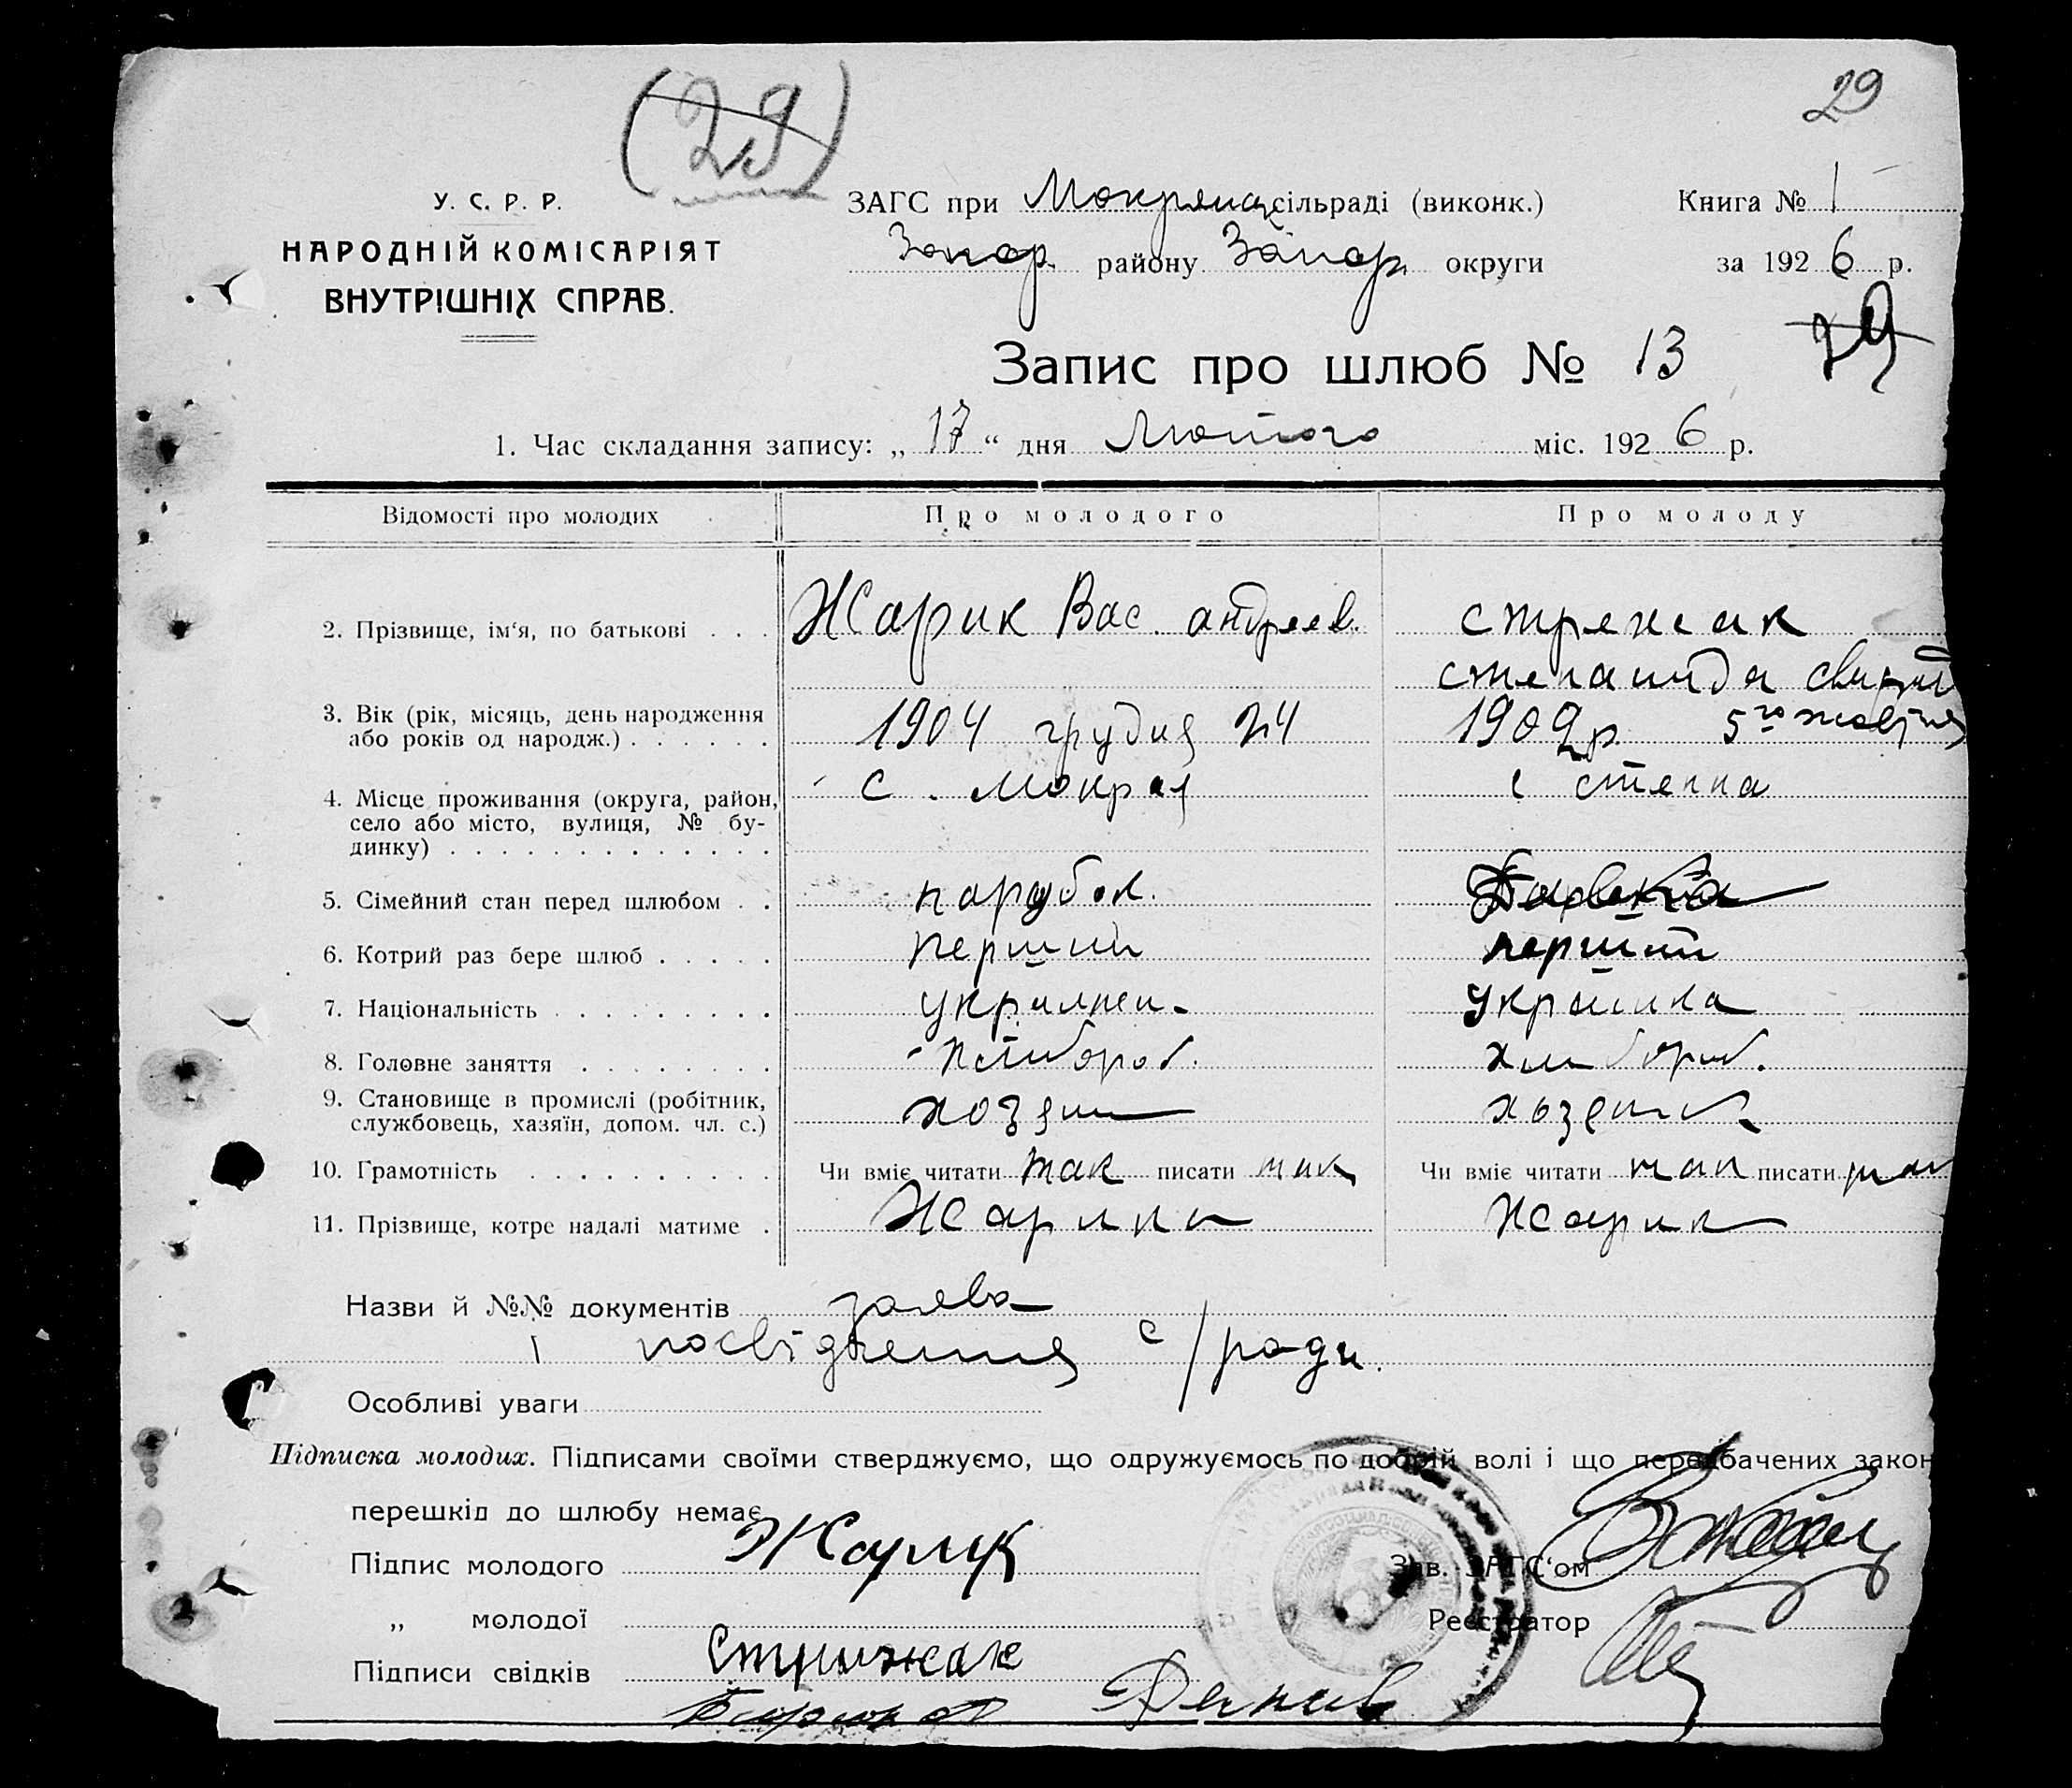 29
(29)
У. С. Р. Р.
НАРОДНІЙ КОМІСАРІЯТ
ВНУТРІШНІХ СПРАВ.
ЗАГС при Мокрянц сільраді (виконк.)
Запор. району Запор. округи
Книга № 1
за 1926 р.
Запис про шлюб № 13
29
1. Час складання запису: „17“ дня Лютого міс. 1926 р.
Відомості про молодих Про молодого Про молоду
2. Прізвище, ім‘я, по батькові . . . Жарик Вас. андреев. стрежак
степанида свирид
3. Вік (рік, місяць, день народження
або років од народж.) . . . . . . 1904 грудня 24 1909р 5го жовтня
4. Місце проживання (округа, район,
село або місто, вулиця, № бу-
динку) . . . . . . . . . . . . . с. мокрая с степна
5. Сімейний стан перед шлюбом . . парубок.
6. Котрий раз бере шлюб . . . . . перший перший
7. Національність . . . . . . . . . украинка
8. Головне заняття . . . . . . . . хлибороб. хлибороб.
9. Становище в промислі (робітник,
службовець, хазяїн, допом. чл. с.) хозяин
10. Грамотність . . . . . . . . . . Чи вміє читати так писати так Чи вміє читати так писати так
11. Прізвище, котре надалі матиме . Жарик
Назви й №№ документів заява
і посвідчення с/ради.
Особливі уваги
Підписка молодих. Підписами своїми стверджуємо, що одружуємось по добрій волі і що передбачених закон
перешкід до шлюбу немає
Підпис молодого Жарик Зав. ЗАГС‘ом
„ молодої Реєстратор
Підписи свідків Стрижак